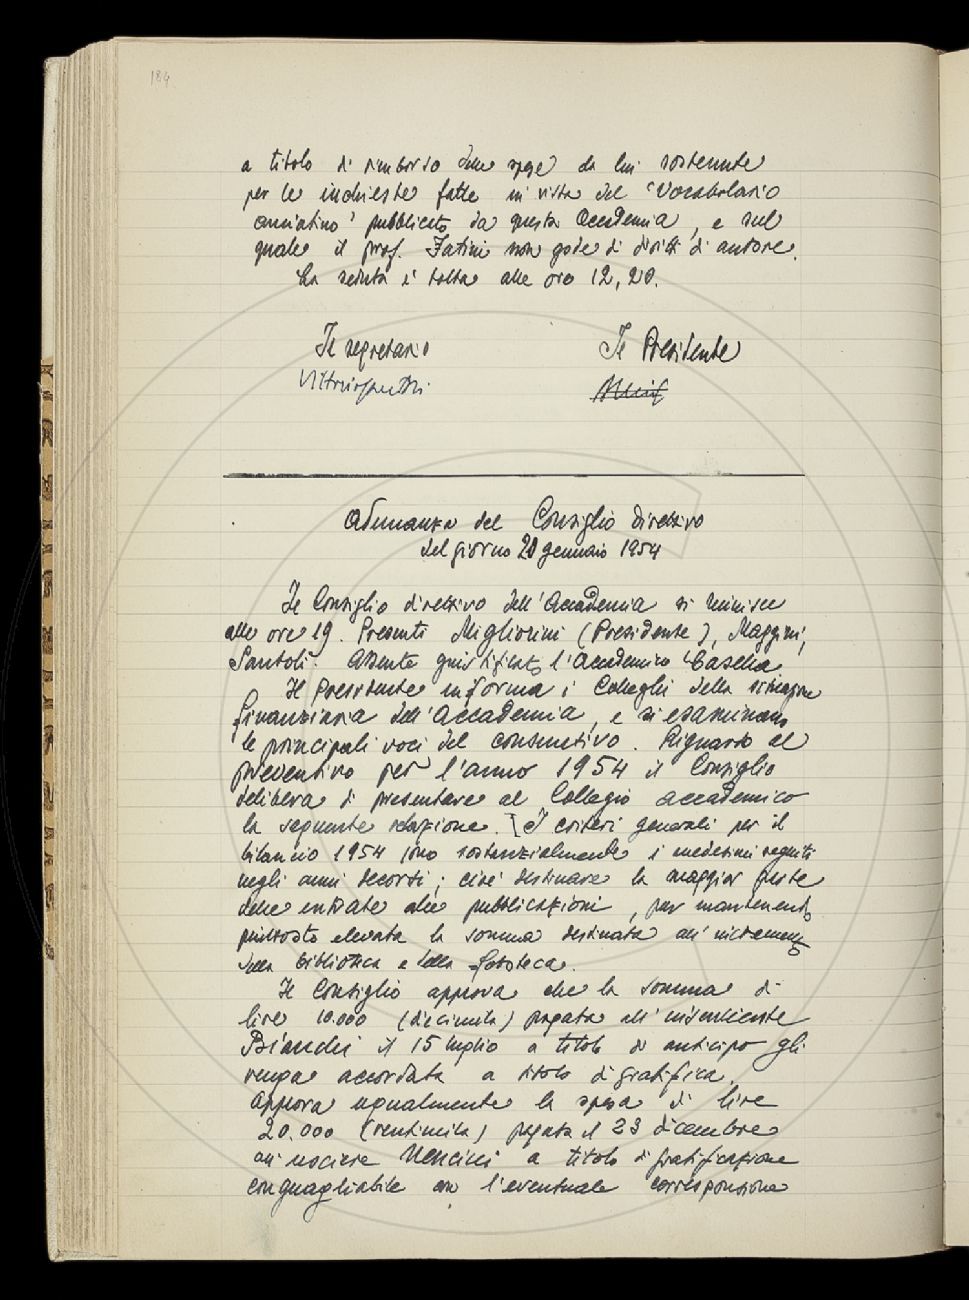 184
a titolo di rimborso delle spese da lui sostenute
per le inchieste fatte in vista del "Vocabolario
amiatino" pubblicato da questa Accademia, e sul
quale il prof. Fatini non gode di diritti di autore.
La seduta è tolta alle ore 12,20.
Il segretario
Il Presidente
Adunanza del Consiglio direttivo
del giorno 21 gennaio 1954
Il Consiglio direttivo dell'Accademia si riunisce
alle ore 19. Presenti Migliorini (Presidente), Maggini,
Santoli. Assente giustificato l'Accademico Casella.
Il Presidente informa i Colleghi della situazione
finanziaria dell'Accademia, e si esaminano
le principali voci del consuntivo. Riguardo al
preventivo per l'anno 1954 il Consiglio
delibera di presentare al Collegio accademico
la seguente relazione. I criteri generali per il
bilancio 1954 sono sostanzialmente i medesimi seguiti
negli anni decorsi; cioè destinare la maggior parte
delle entrate alle pubblicazioni, pur mantenendo
piuttosto elevata la somma destinata all'incremento
della biblioteca e della fototeca.
Il Consiglio approva che la somma di
lire 10.000 (diecimila) pagata all'inserviente
Bianchi il 15 luglio a titolo di anticipo gli
venga accordata a titolo di gratifica.
Approva ugualmente la spesa di lire
20.000 (ventimila) pagata il 23 dicembre
all'usciere Nencini a titolo di gratificazione
conguagliabile con l'eventuale corresponsione